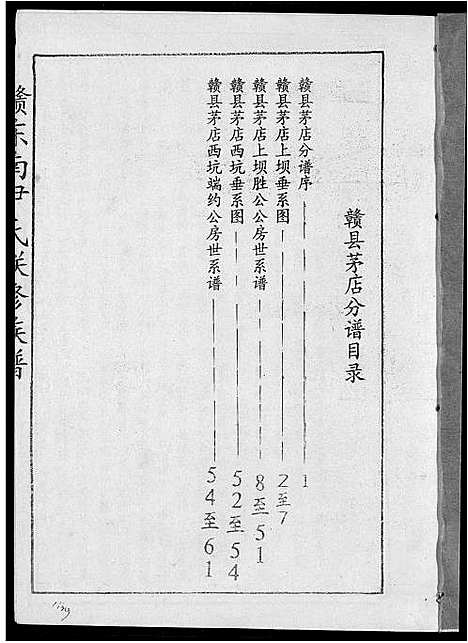 赣县茅店分谱目录
赣县茅店分谱序 1
赣县茅店上坝垂系图 2至7
赣县茅店上坝胜公公房世系谱 8至51
赣县茅店西坑垂系图 52至54
赣县茅店西坑端约公房世系谱 54至61
赣东南尹氏联修族谱